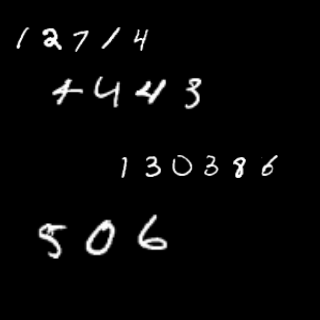 12714
4443
130386
506